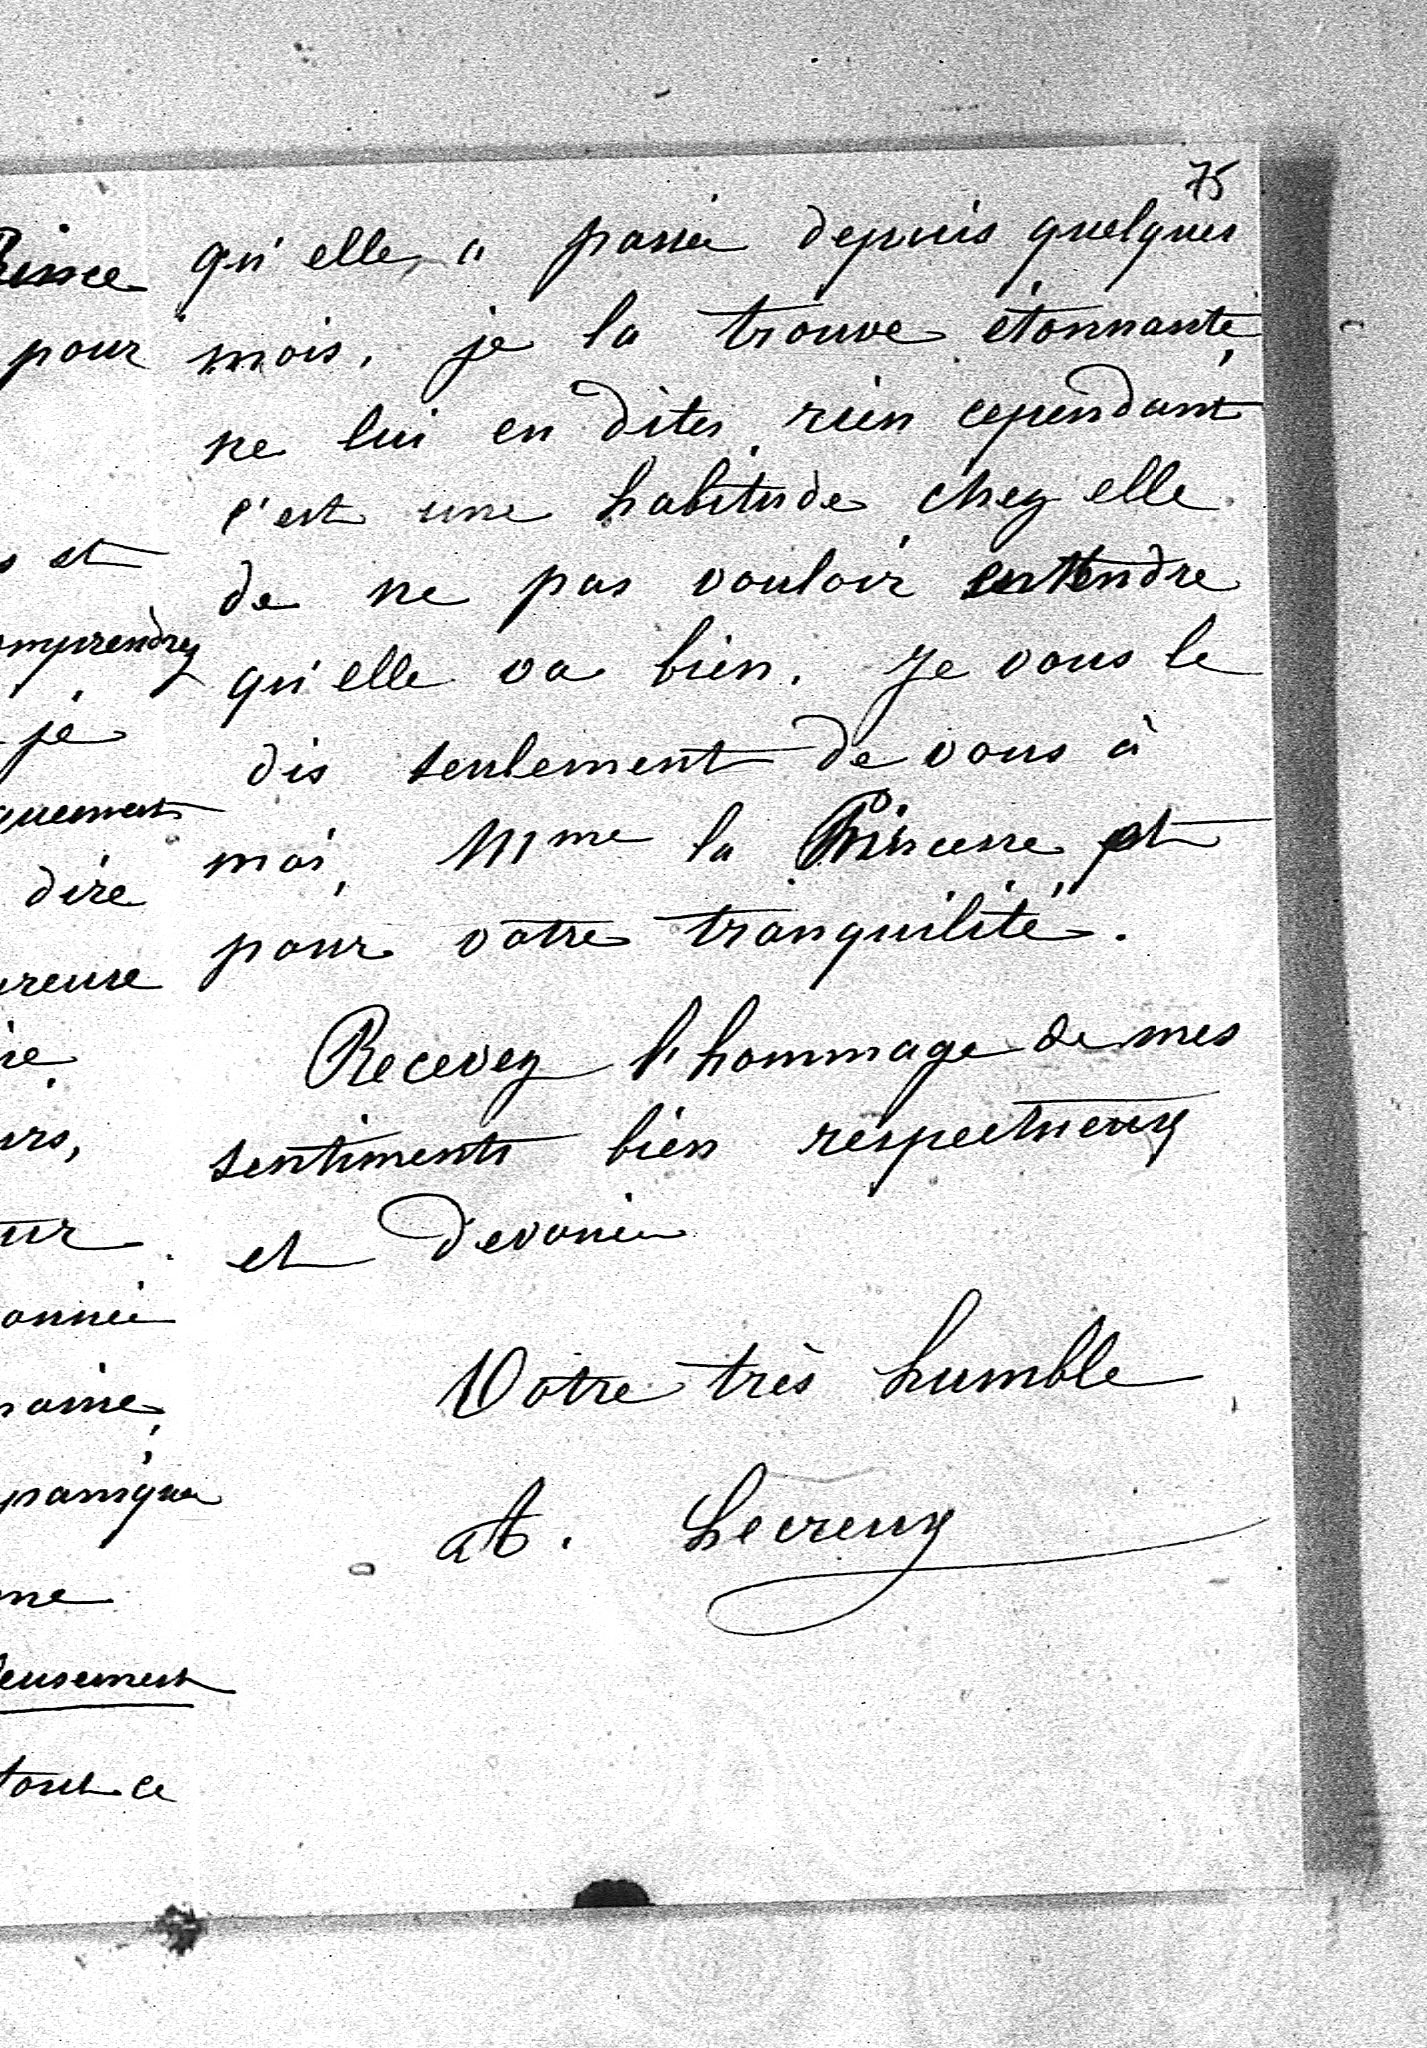 75
qu'elle a passée depuis quelques
mois, je la trouve étonnante,
ne lui en dites rien cependant
c'est une habitude chez elle
de ne pas vouloir entendre
qu'elle va bien. Je vous le
dis seulement de vous à
moi, Mme la Princesse et
pour votre tranquilité.
Recevez l'hommage de mes
sentiments bien respectueux
et devoués
Votre très humble
A. Lecreux
Prince
pour
et
omprendrez
je
quement
dire
ureuse
ire,
urs,
ur
onnée
paniquée
me
leusement
tout ce